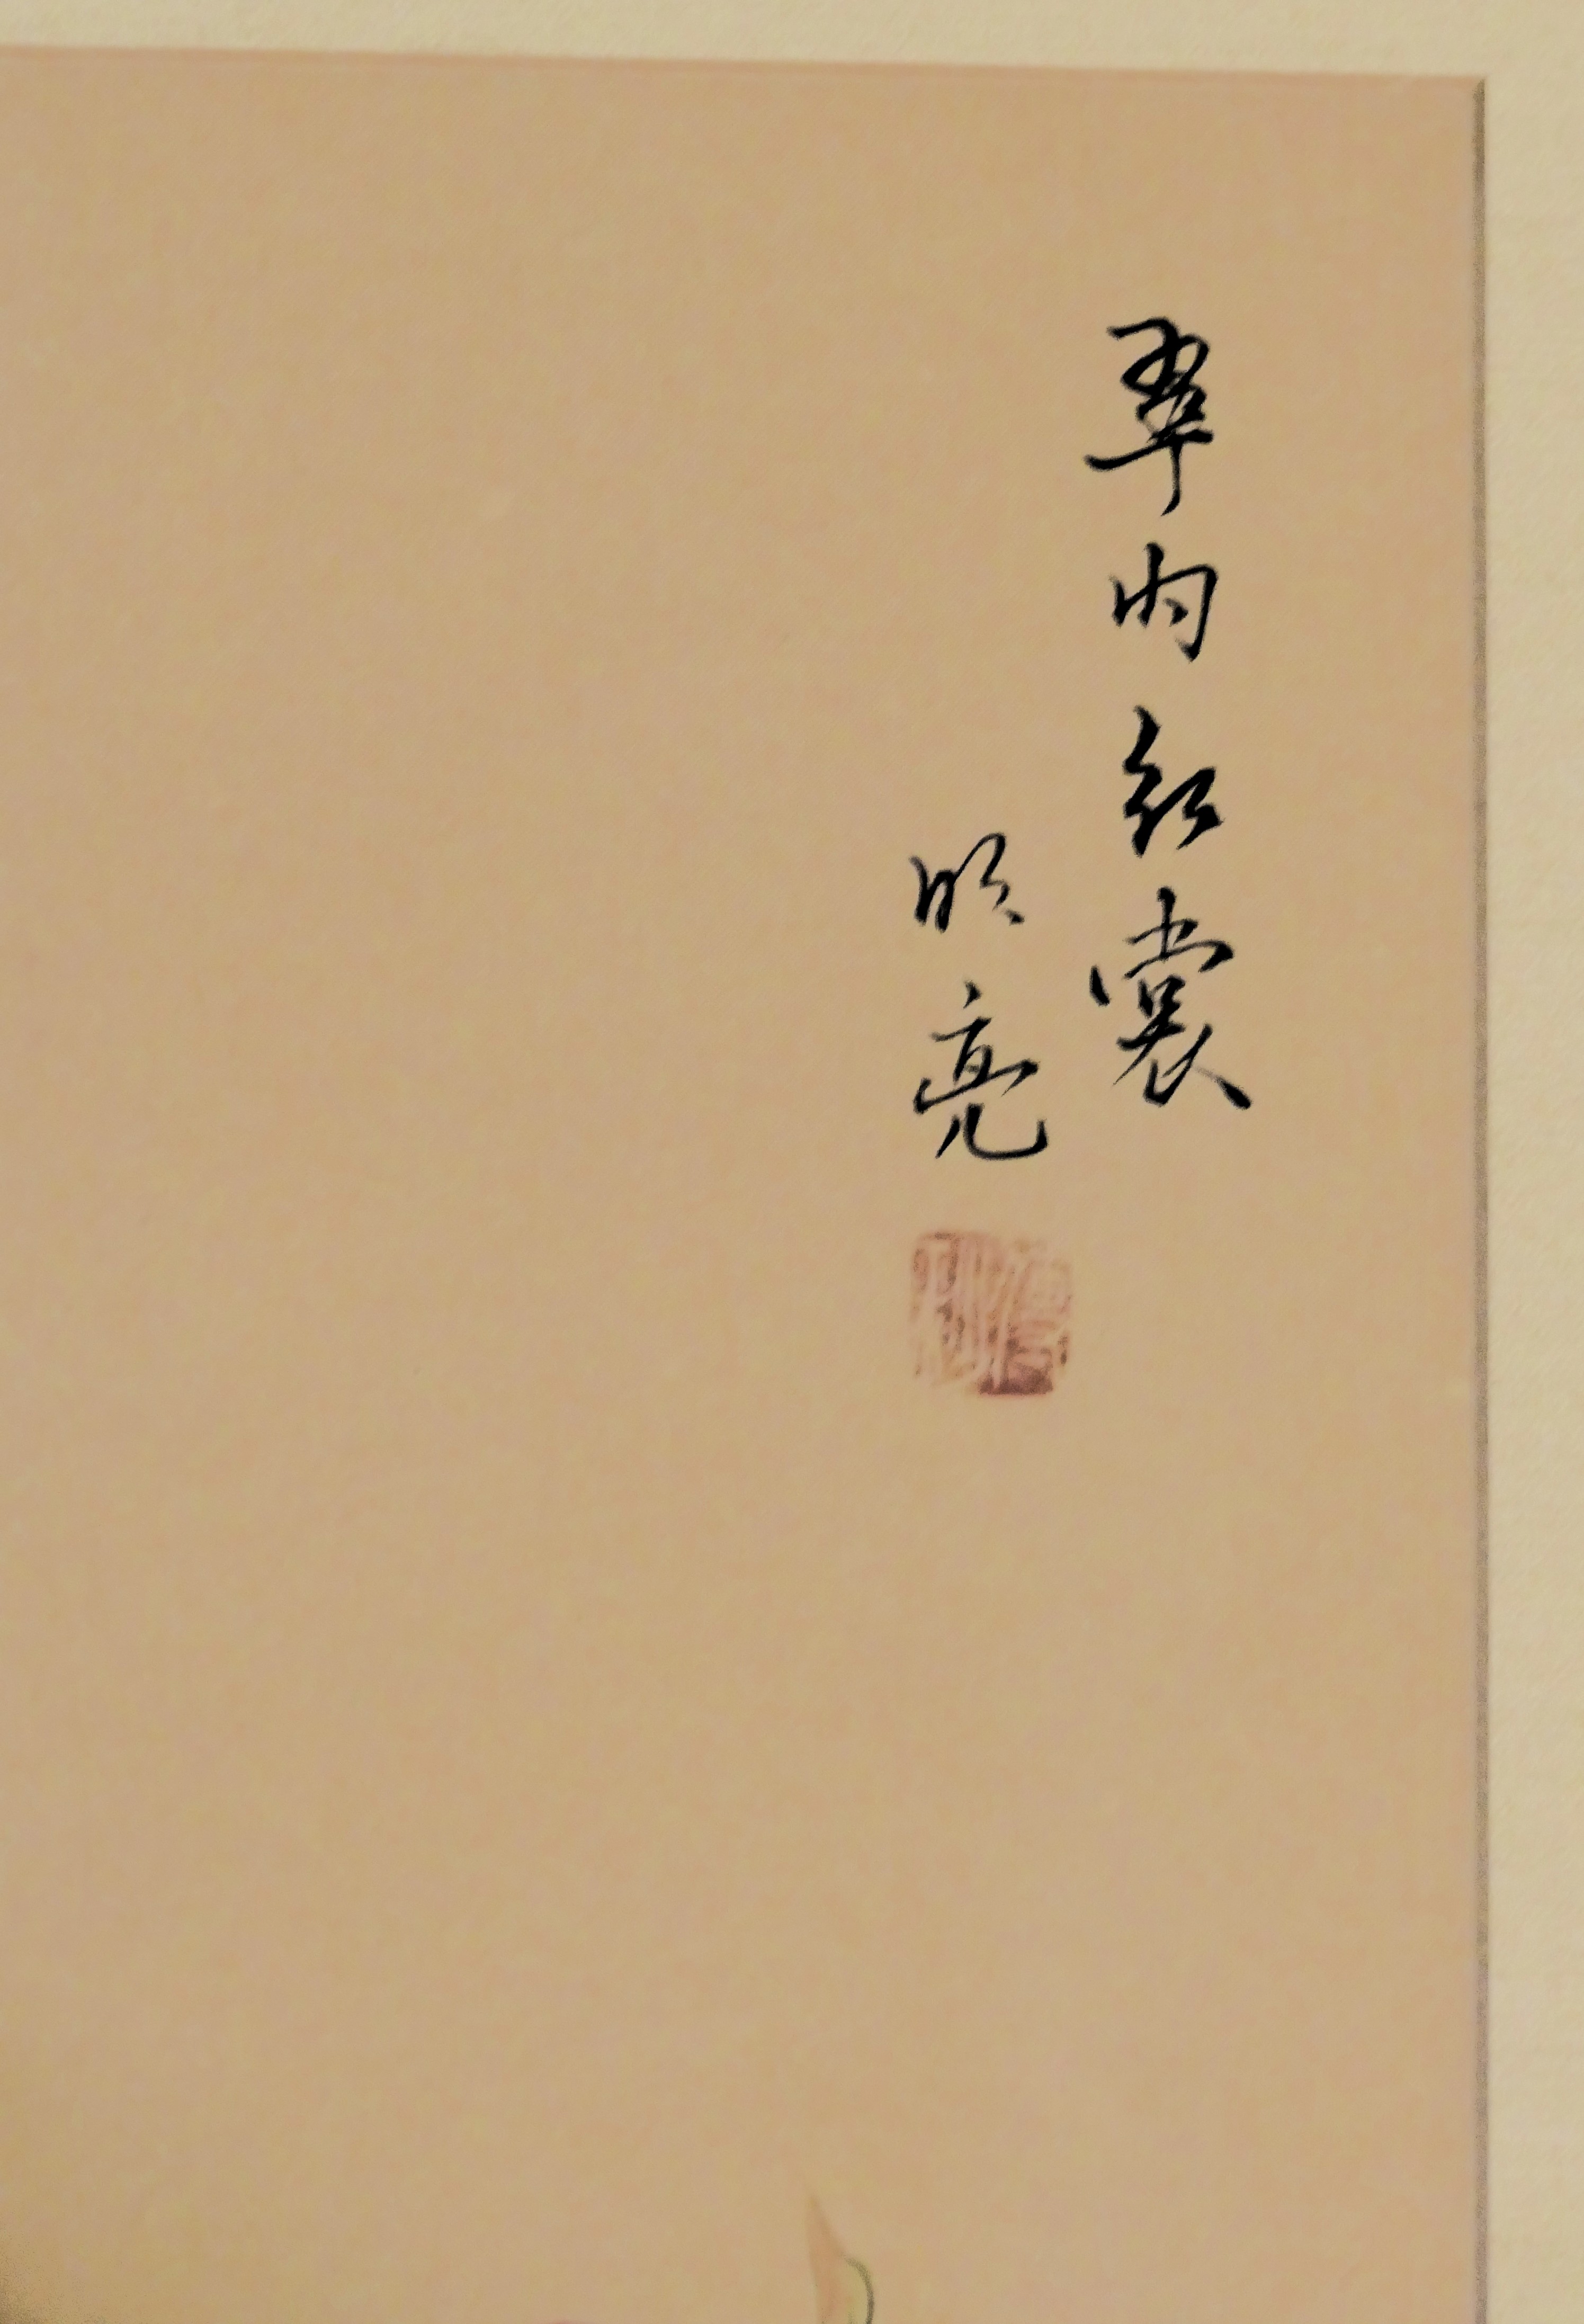 翠内红裳
明亮